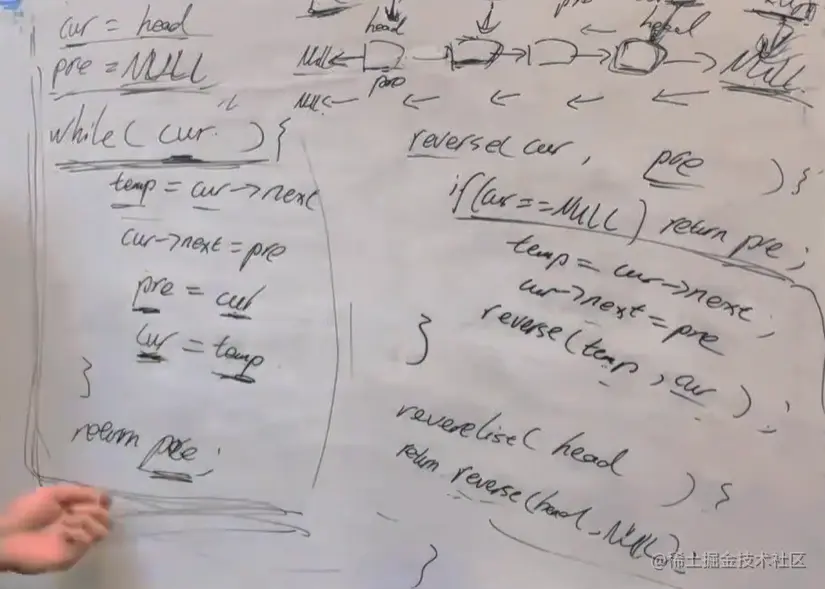 cur = head
pre = NULL
while( cur ) {
temp = cur->next
cur->next = pre
pre = cur
cur = temp
}
return pre;
head
head
NULL
NULL
pre
NULL
reverse( cur, pre ) {
if(cur==NULL) return pre;
temp = cur->next;
cur->next = pre
reverse(temp, cur);
}
reverselist( head ) {
return reverse(head, NULL);
}
@稀土掘金技术社区